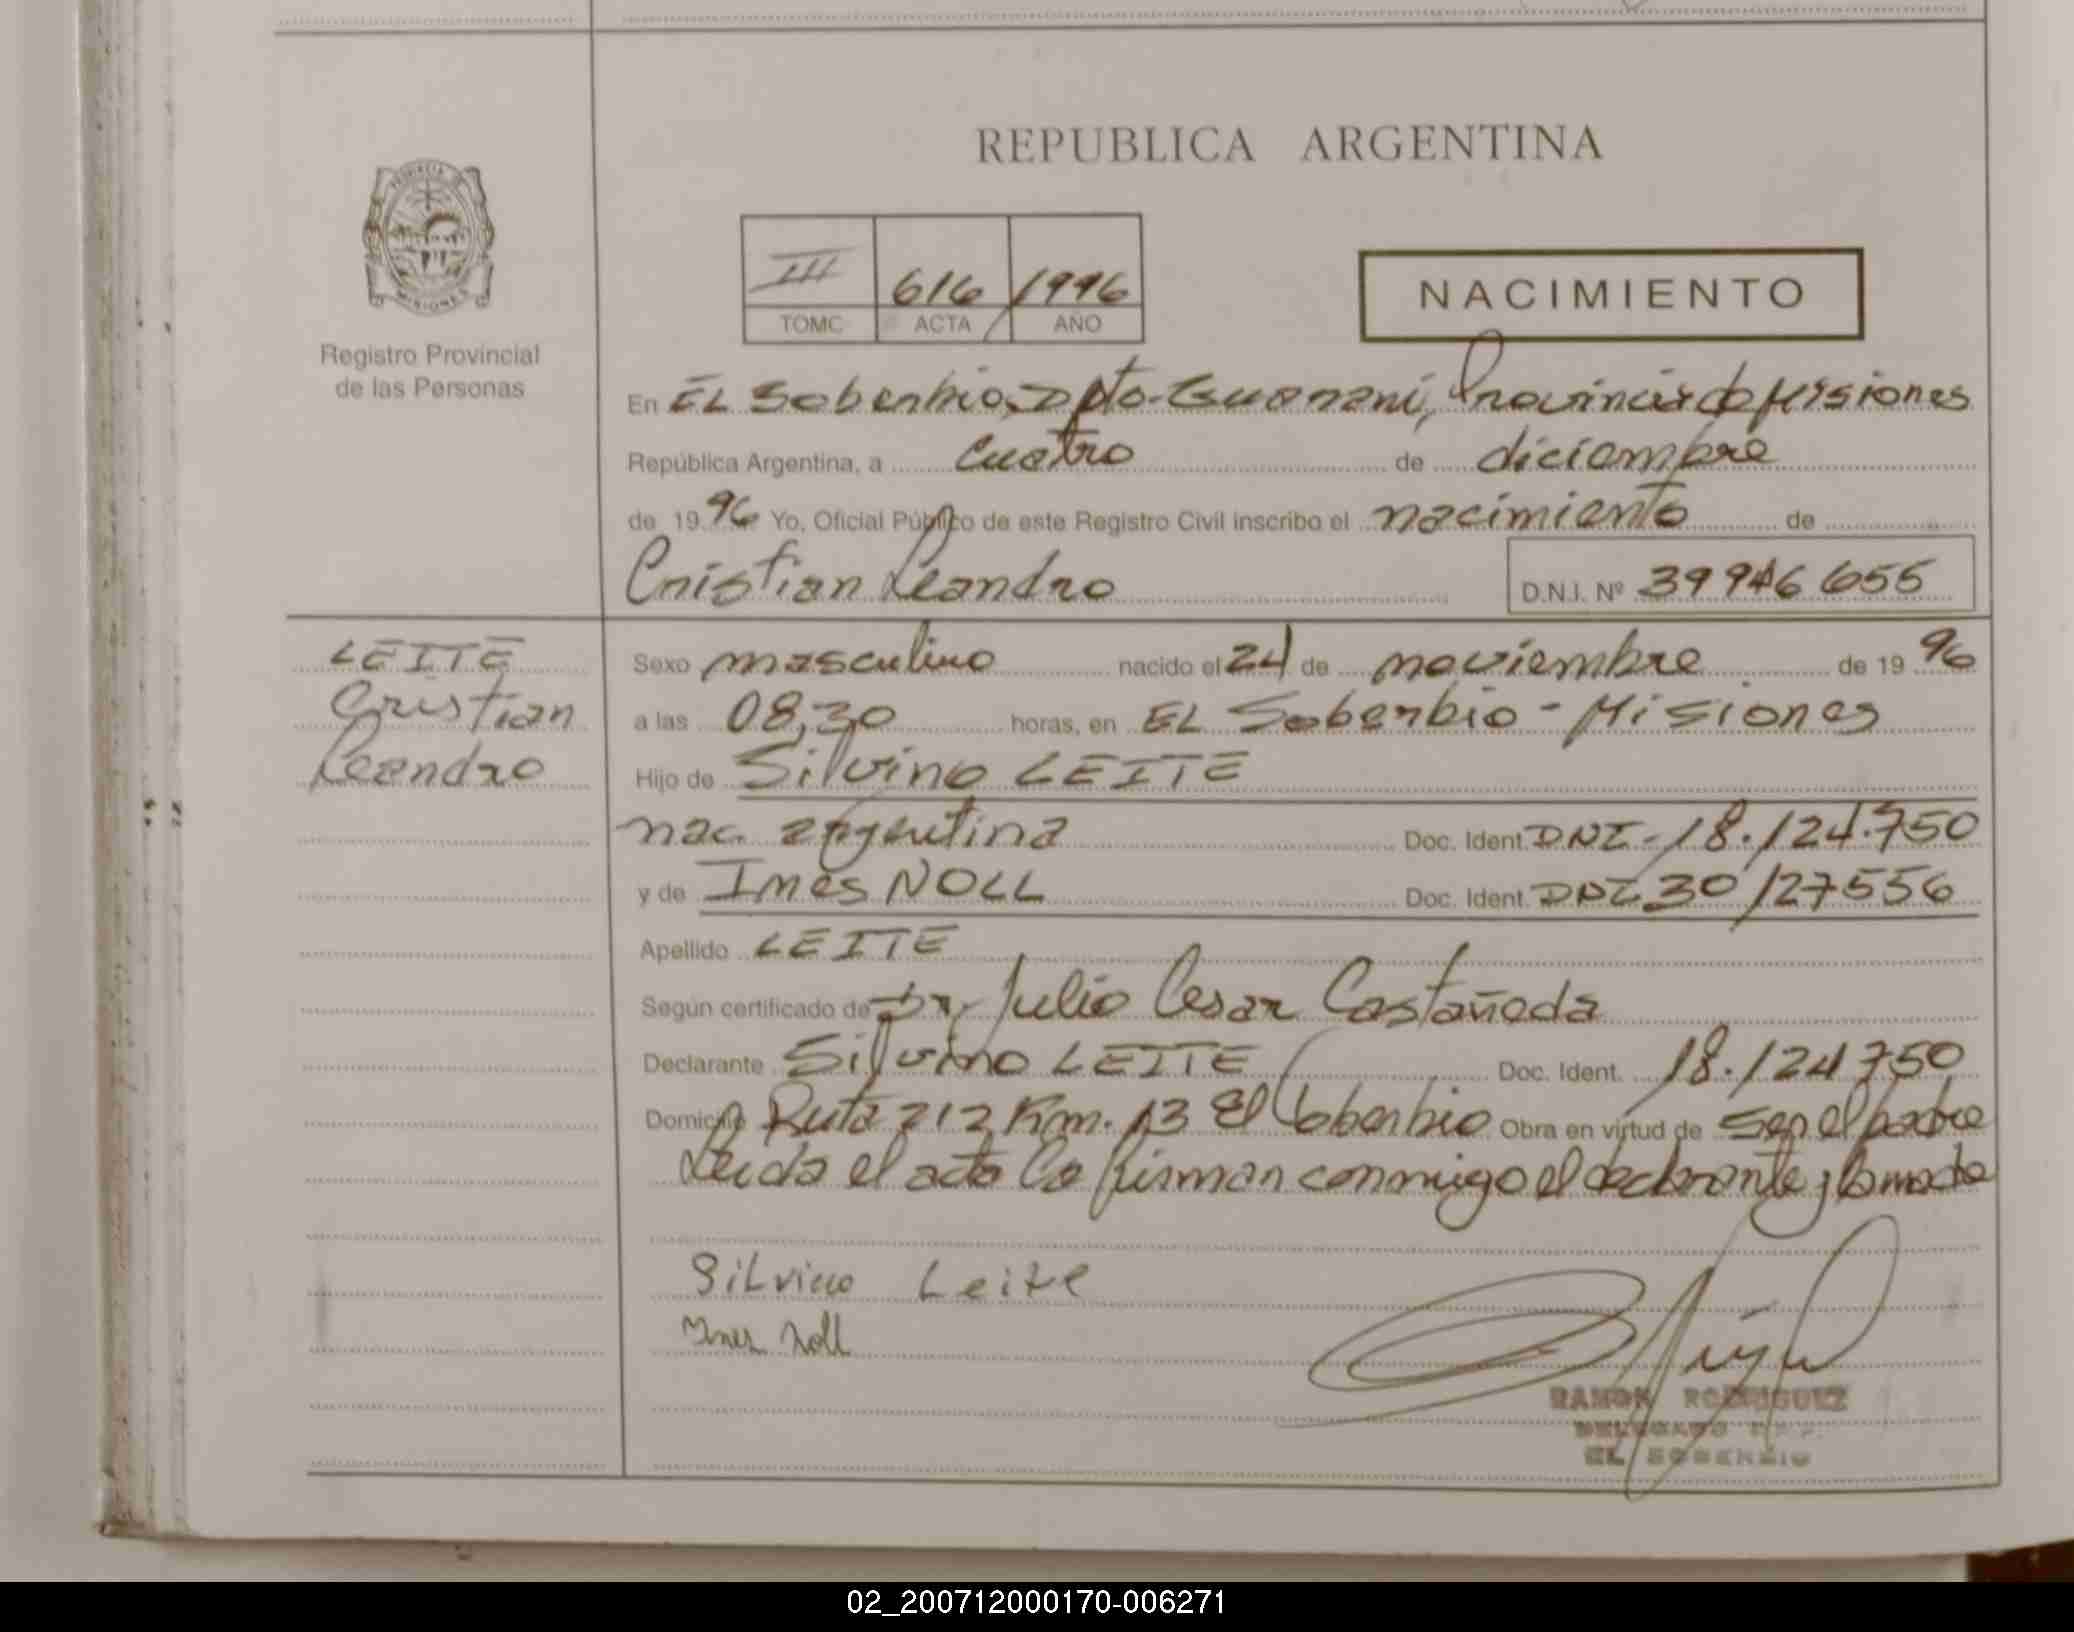 REPUBLICA ARGENTINA
PROVINCIA DE
MISIONES
Registro Provincial
de las Personas
III 616 1996
TOMO ACTA AÑO
NACIMIENTO
En EL Soberbio, Dpto. Guaraní, Provincia de Misiones
República Argentina, a cuatro de diciembre
de 1996 Yo, Oficial Público de este Registro Civil inscribo el nacimiento de
Cristian Leandro D.N.I. Nº 39946655
LEITE
Cristian
Leandro
Sexo masculino nacido el 24 de noviembre de 1996
a las 08,30 horas, en EL Soberbio - Misiones
Hijo de Silvino LEITE
nac. argentina Doc. Ident. DNI-18.124.750
y de Ines NOLL Doc. Ident. DNI 30127556
Apellido LEITE
Según certificado de Dr. Julio Cesar Castañeda
Declarante Silvino LEITE Doc. Ident. 18.124750
Domicilio Ruta 212 Km. 13 El Soberbio Obra en virtud de ser el padre
Leida el acta la firman conmigo el declarante y la madre
Silvino Leite
Ines Noll
RAMON RODRIGUEZ
DELEGADO
EL SOBERBIO
02_200712000170-006271